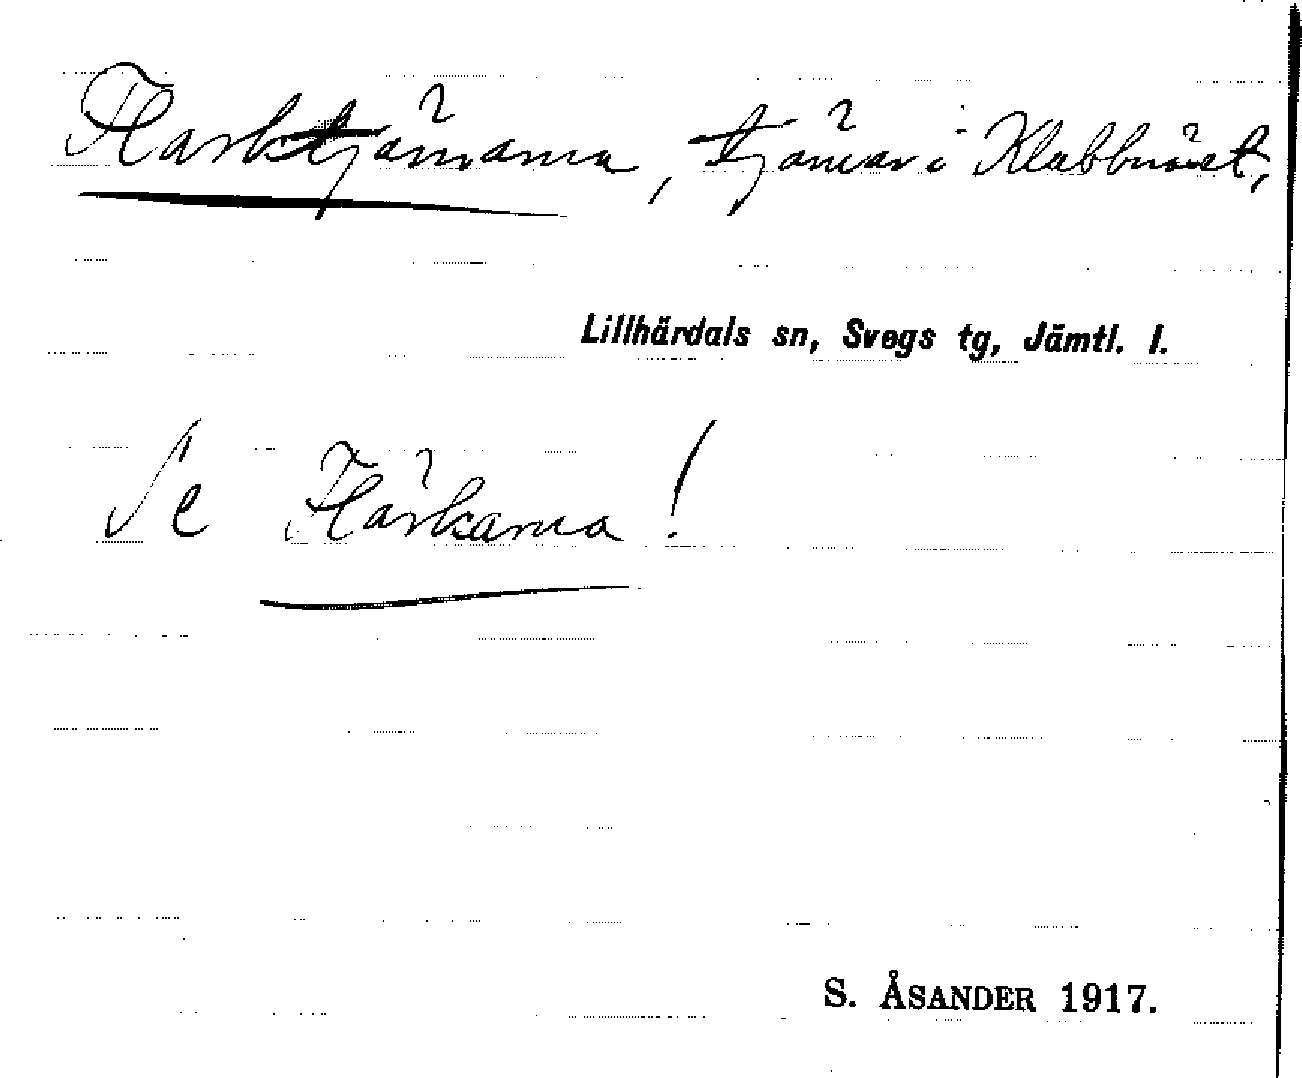 Harktjärnarna, tjärnar i Klabbnäset,
Lillhärdals sn, Svegs tg, Jämtl. l.
Se Härkarna!
S. ÅSANDER 1917.